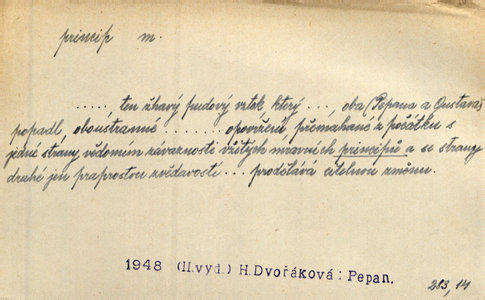 princip m.
....., ten žhavý pudový vztek který ..., oba (Pepana a Gustava)
popadl, oboustranné ........ opovržení, přemáhané z počátku s
jedné strany vědomím závaznosti vžitých mravních principů a se strany
druhé jen praprostou zvědavostí ... prodělává citelnou změnu.
1948 (II.vyd.) H.Dvořáková: Pepan.
283,14